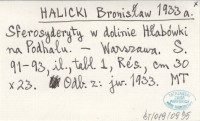 HALICKI Bronisław 1933 a.
Sferosyderyty w dolinie Hłabówki
na Podhalu. — Warszawa. S.
91-93, il., tabl 1, Rés., cm 30
x 23. Odb. z: jw. 1933. MT